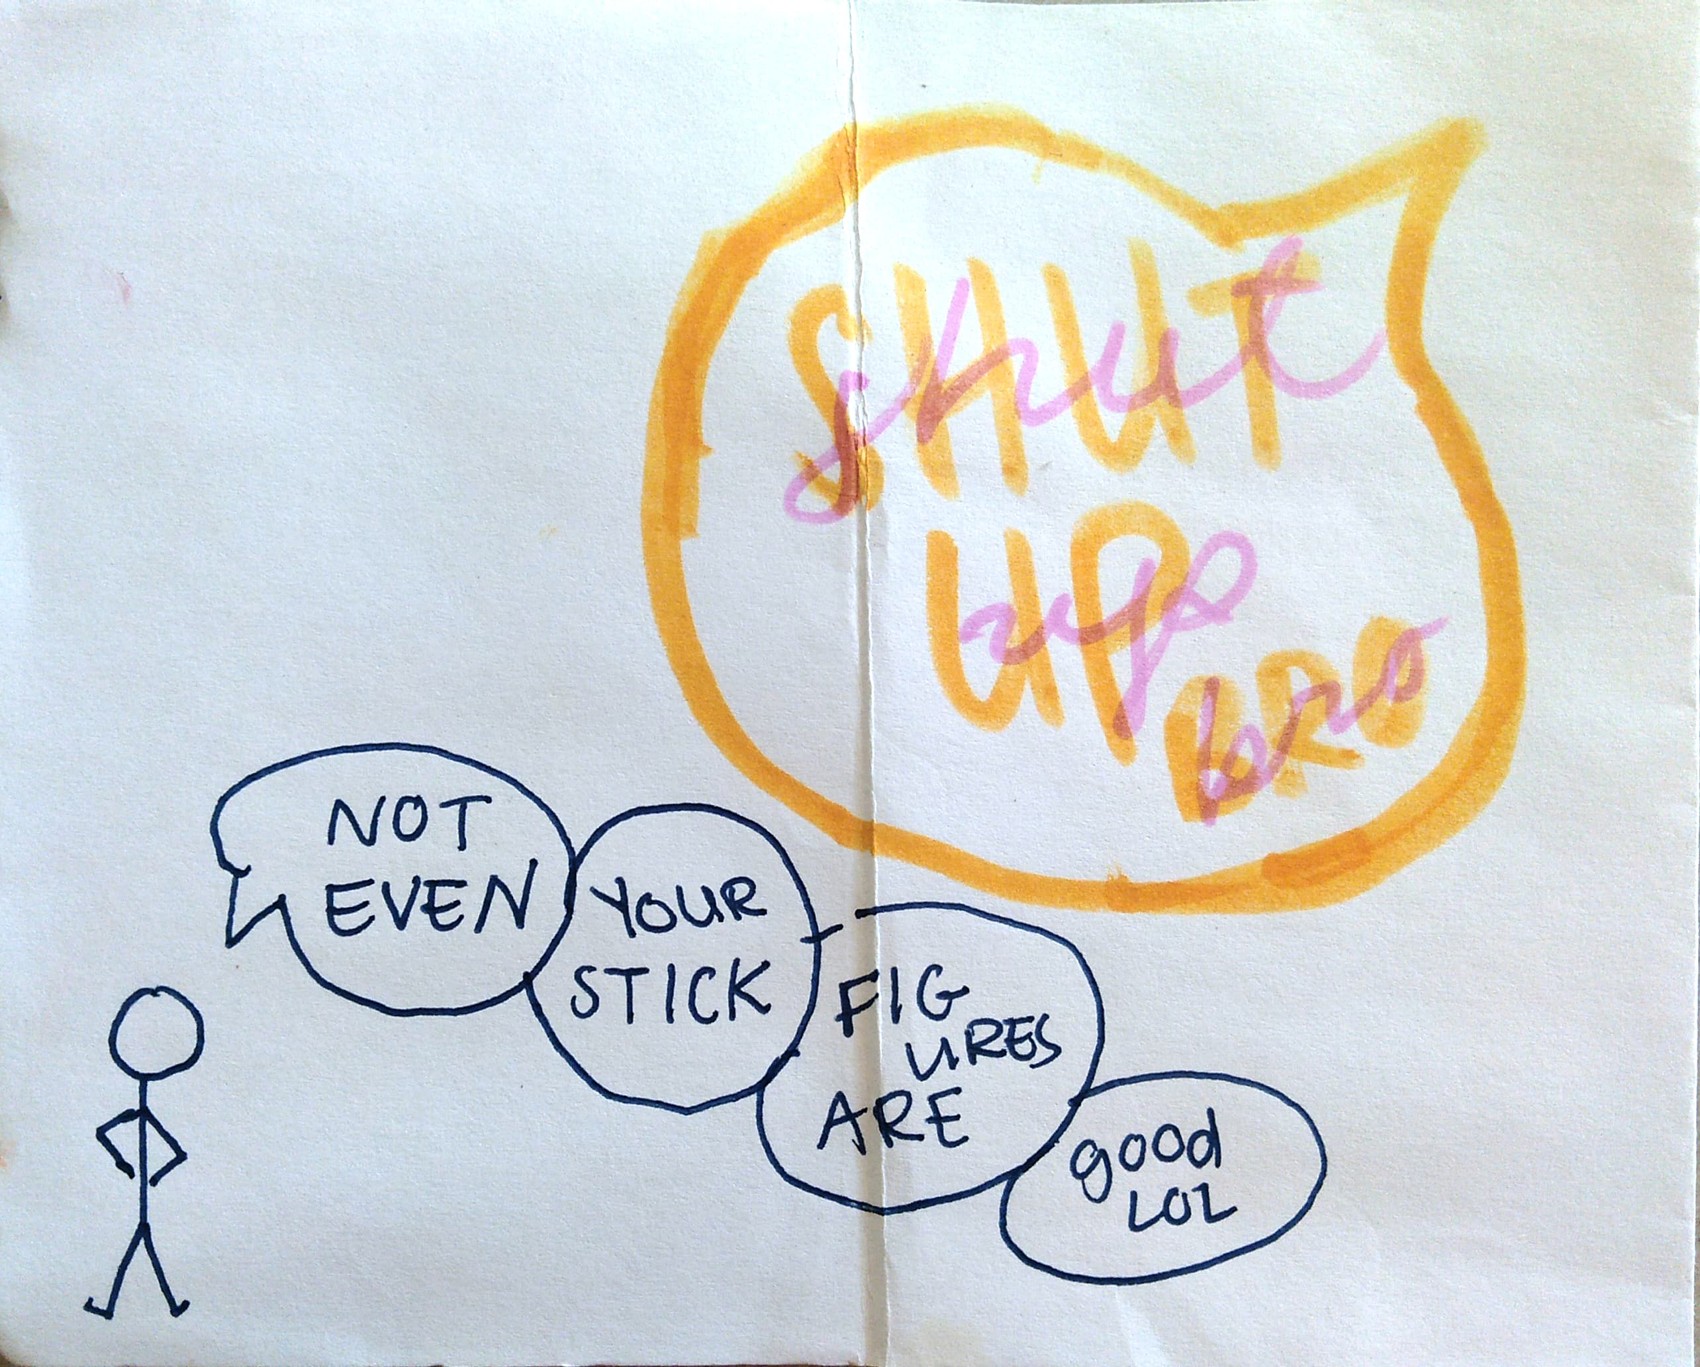 SHUT
UP
BRO
shut
up
bro
NOT
EVEN
YOUR
STICK
FIG
URES
ARE
good
LOL